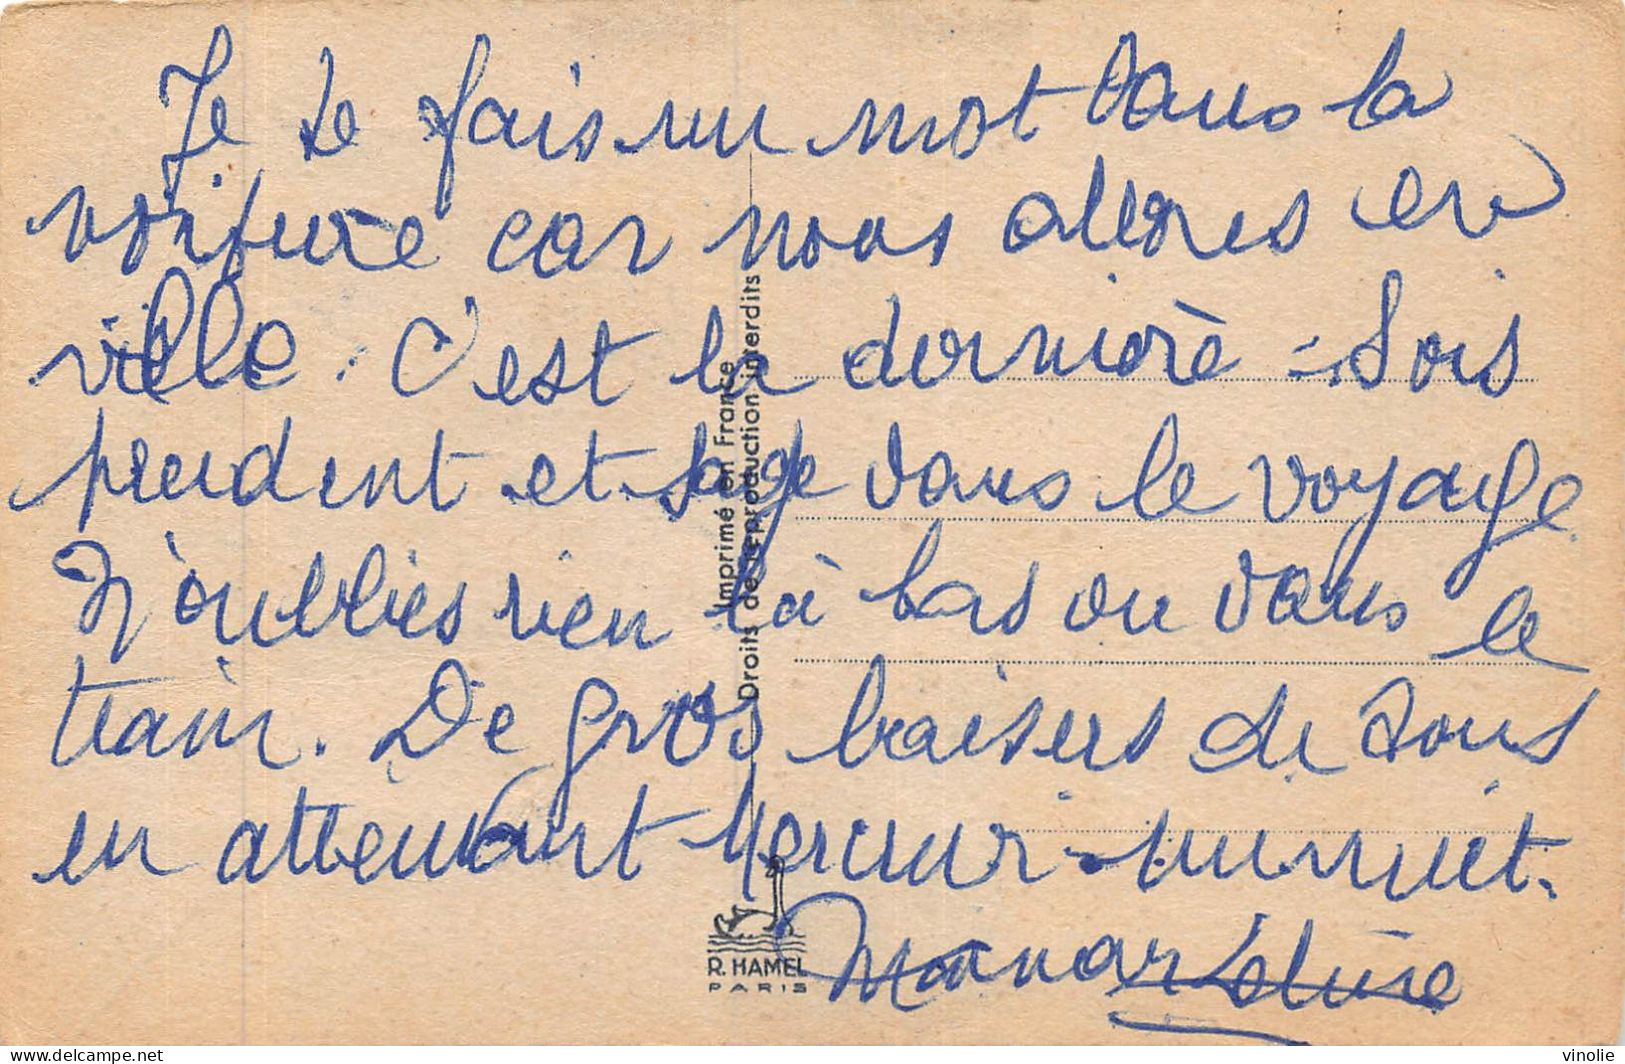 Je te fais un mot dans la
voiture car nous allons en
ville. C'est la dernière - Sois
prudent et sage dans le voyage
N'oublies rien là bas ou dans le
train. De gros baisers de nous
en attendant Mercredi - minuit.
Maman
Imprimé en France
Droits de reproduction interdits
R. HAMEL
PARIS
delcampe.net
vinolie